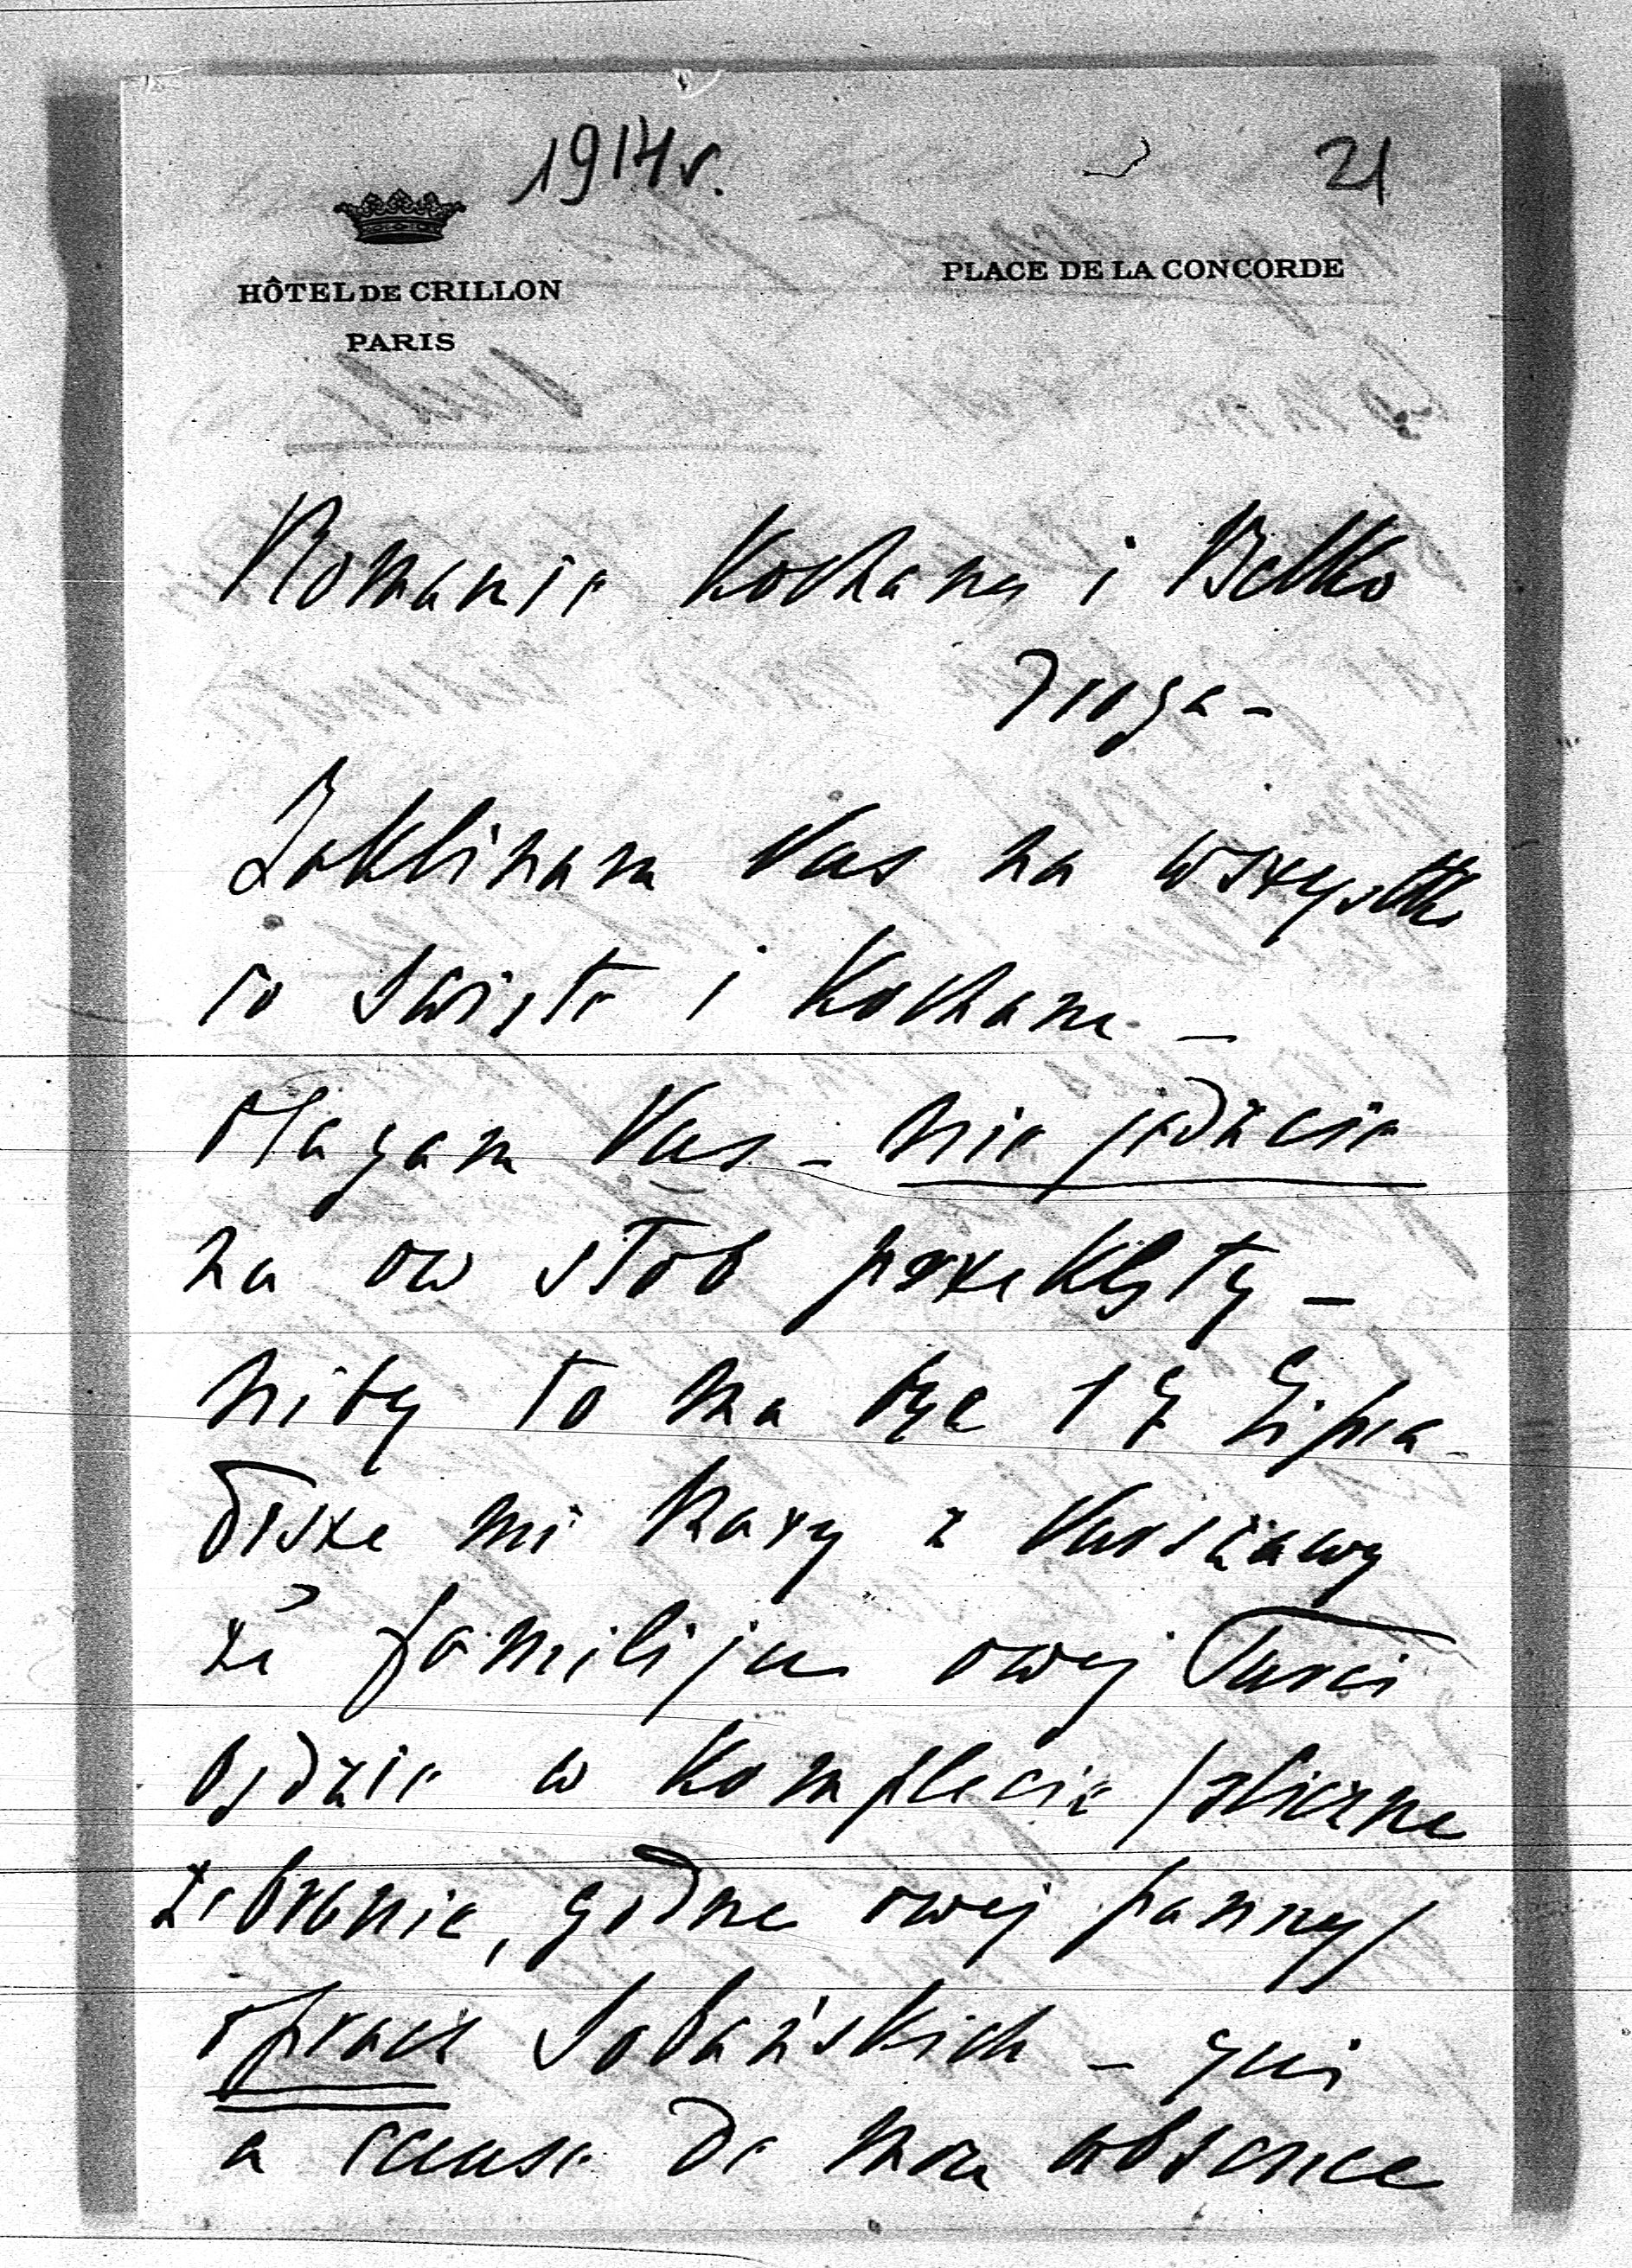 1914 r.
21
HÔTEL DE CRILLON
PARIS
PLACE DE LA CONCORDE
Romanie Kochany i Belko
Droga -
Zaklinam Vas na wszystko
co swięte i kochane -
błagam Vas - nie jedźcie
na ow słób przeklęty -
niby to ma być 17 Lipca -
Pisze mi Mary z Varszawy
że familija owej Turci
będzie w komplecie /śliczne
zebranie, godne owej panny/
oprócz Sobańskich - qui
a cause de mon absence